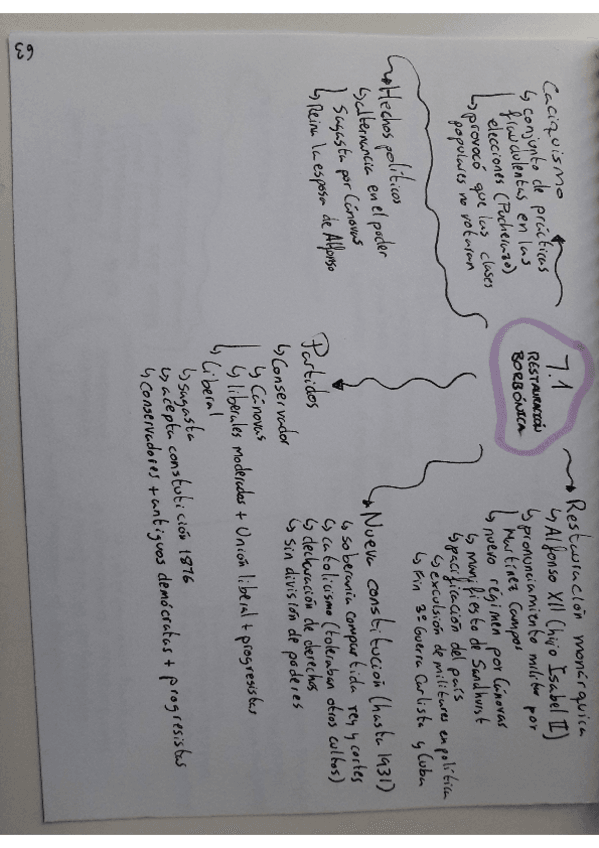 7.1
RESTAURACIÓN
BORBÓNICA
Restauración monárquica
↳ Alfonso XII (hijo Isabel II)
↳ pronunciamiento militar por
Martínez Campos
↳ nuevo régimen por Cánovas
↳ manifiesto de Sandhurst
↳ pacificación del país
↳ exculsión de militares en política
↳ Fin 3º Guerra Carlista y Cuba
Nueva constitución (hasta 1931)
↳ soberanía compartida rey y cortes
↳ catolicismo (toleraban otros cultos)
↳ declaración de derechos
↳ sin división de poderes
Partidos
↳ Conservador
↳ Cánovas
↳ liberales moderados + Unión liberal + progresistas
↳ Liberal
↳ sagasta
↳ acepta constutición 1876
↳ conservadores + antiguos demócratas + progresistas
Hechos políticos
↳ alternancia en el poder
Sagasta por Cánovas
↳ Reina la esposa de Alfonso
Caciquismo
↳ conjunto de prácticas
fraudulentas en las
elecciones (Pucherazo)
↳ provocó que las clases
populares no votaran
63